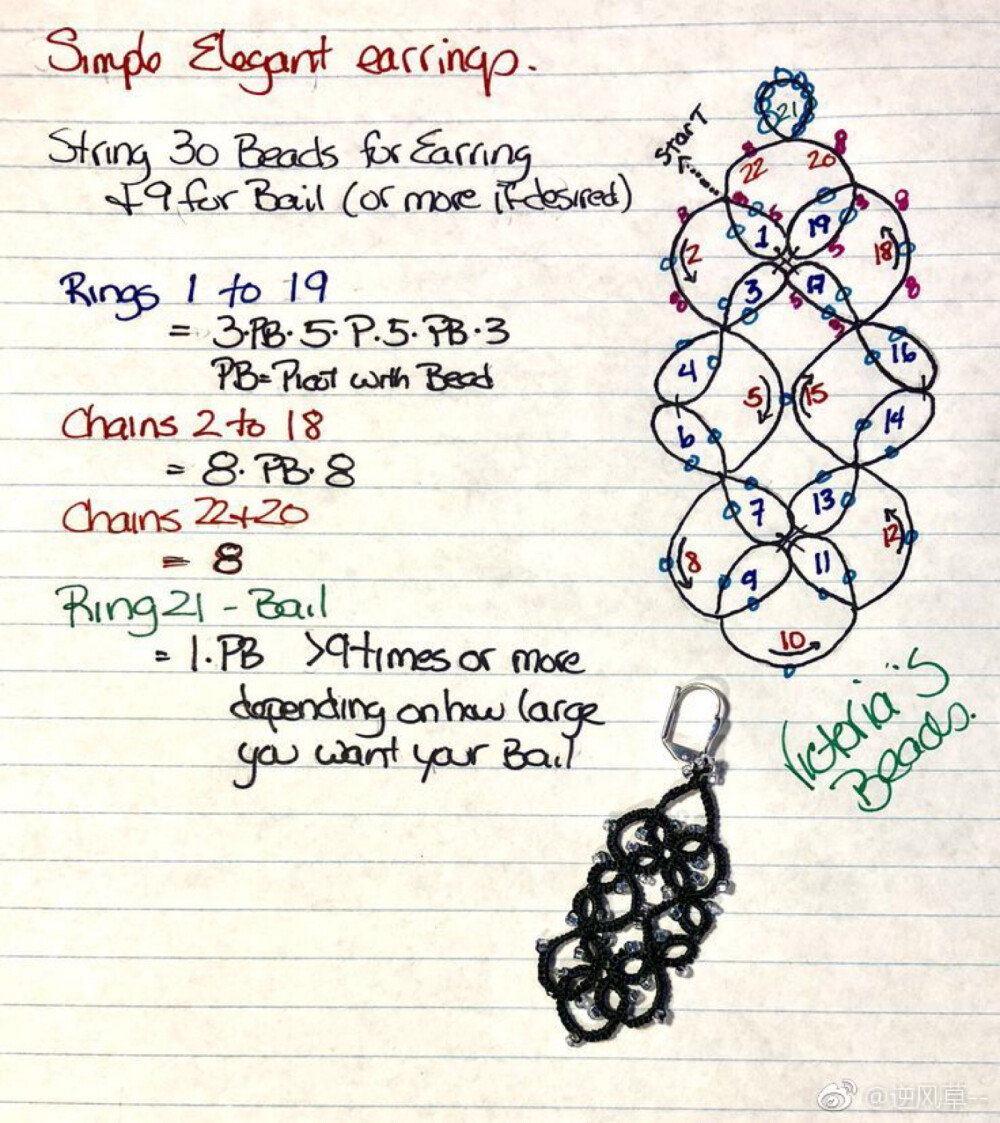 Simple Elegant earrings.
String 30 Beads for Earring
+9 for Bail (or more if desired)
Rings 1 to 19
= 3·PB·5·P·5·PB·3
PB=Picot with Bead
Chains 2 to 18
= 8·PB·8
Chains 22+20
= 8
Ring 21 - Bail
= 1·PB >9 times or more
depending on how large
you want your Bail
START
21
8
8
22
20
8
3
5
3
8
1
19
2
18
5
8
3
17
5
8
3
4
16
5
15
6
14
7
13
8
12
9
11
10
Victoria's
Beads.
@逆风草一